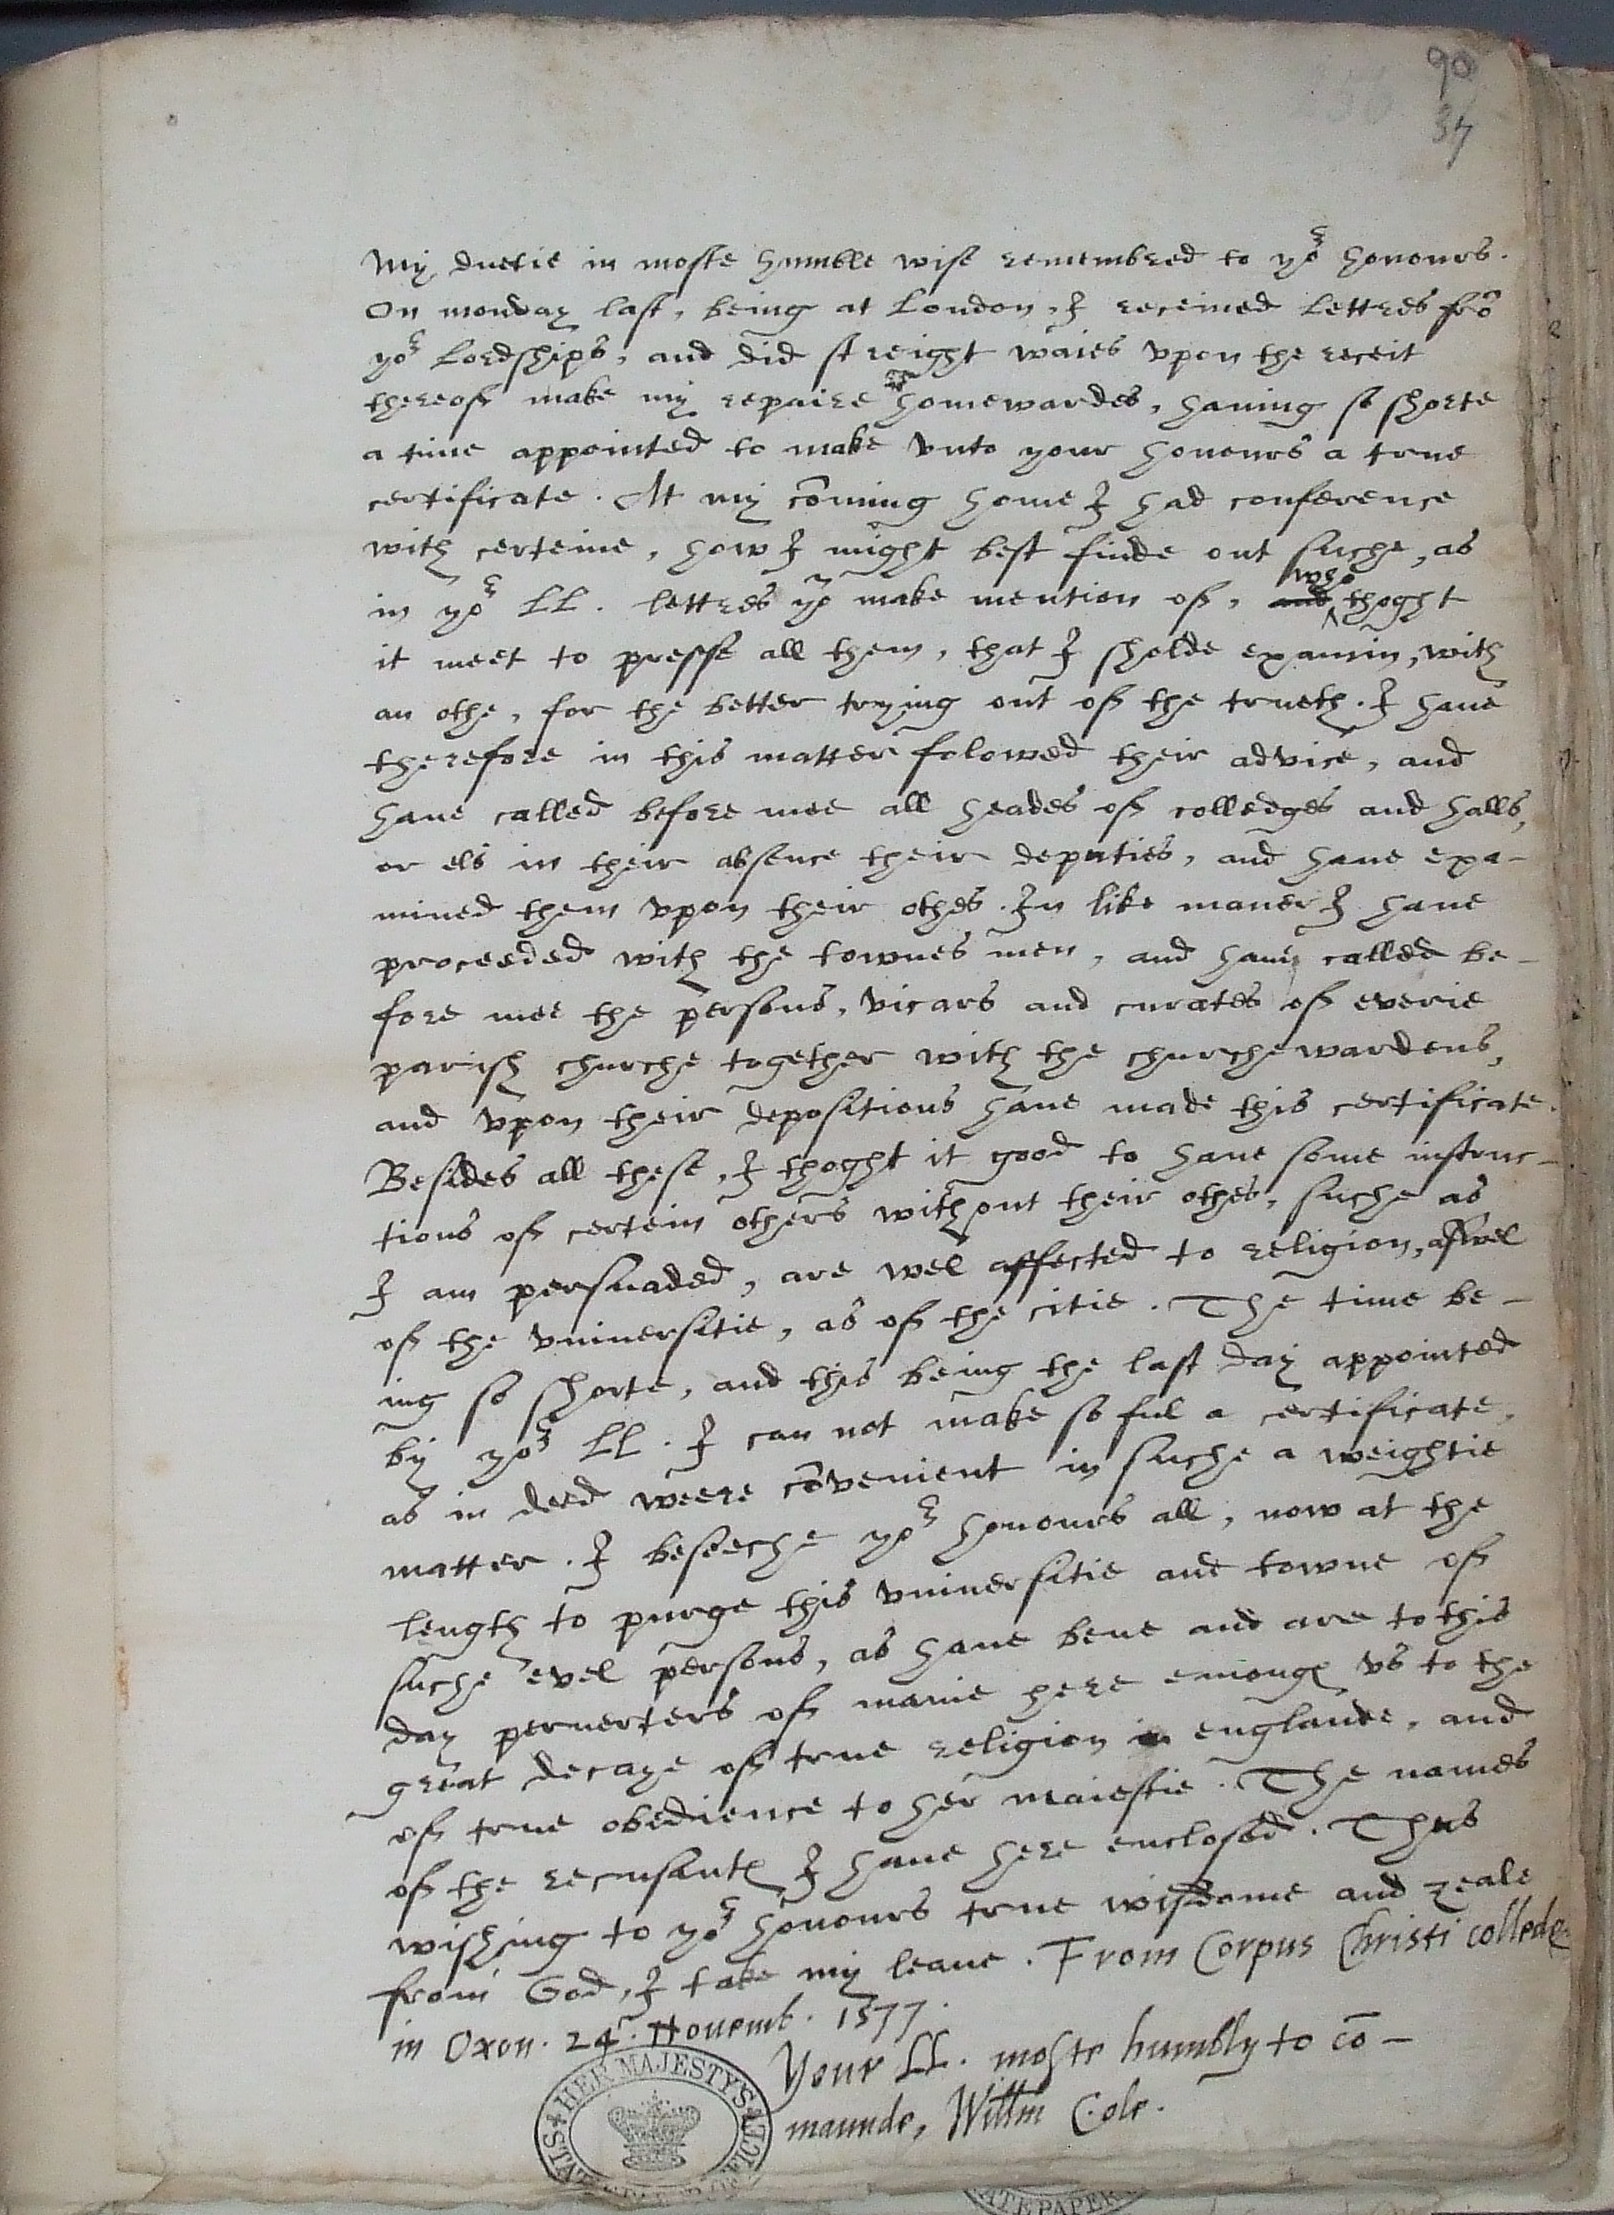 90
37
My duetie in moste humble wise remembred to yoʳ honours.
On monday last, being at London, I receiued lettres frō
yoʳ Lordships, and did streight waies vpon the receit
thereof make my repaire homewardes, hauing so shorte
a time appointed to make vnto your honours a true
certificate. At my cōming home I had conference
with certeine, how I might best finde out suche, as
in yoʳ LL. lettres yo make mention of, and who thoght
it meet to presse all them, that I sholde examin, with
an othe, for the better trying out of the trueth. I haue
therefore in this matter folowed their advice, and
haue called before mee all heades of colledges and halls,
or els in their absence their deputies, and haue exa-
mined them vpon their othes. In like maner I haue
proceeded with the townes men, and haue called be-
fore mee the persons, vicars and curates of everie
parish churche together with the churchewardens,
and vpon their depositions haue made this certificate.
Besides all these, I thoght it good to haue some instruc-
tions of certein others without their othes, suche as
I am persuaded, are wel affected to religion, aswel
of the vniuersitie, as of the citie. The time be-
ing so shorte, and this being the last day appointed
by yoʳ LL. I can not make so ful a certificate,
as in deed weere cōvenient in suche a weightie
matter. I beseeche yoʳ honours all, now at the
length to purge this vniuersitie and towne of
suche evel persons, as haue bene and are to this
day peruerters of manie here emongͤ vs to the
great decaye of true religion in englande, and
of true obedience to her maiestie. The names
of the recusantꝭ I haue here enclosed. Thus
wishing to yoʳ honours true wisdome and zeale
from God, I take my leaue. From Corpus Christi colledg
in Oxon. 24. Nouemb. 1577.
Your LL. moste humbly to cō-
maunde, Willm Cole.
HER MAJESTY'S
STATE PAPER OFFICE
STATE PAPER